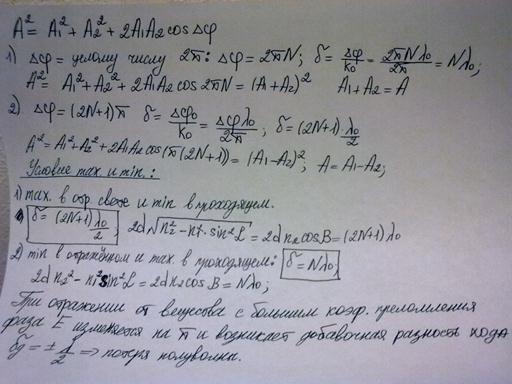 A² = A₁² + A₂² + 2A₁A₂cos Δφ
1) Δφ = целому числу 2π: Δφ = 2πN; δ = Δφ/k₀ = 2πNλ₀/2π = Nλ₀;
A² = A₁² + A₂² + 2A₁A₂ cos 2πN = (A₁ + A₂)² A₁ + A₂ = A
2) Δφ = (2N+1)π δ = Δφ₀/k₀ = Δφλ₀/2π; δ = (2N+1) λ₀/2
A² = A₁² + A₂² + 2A₁A₂cos(π(2N+1)) = (A₁ - A₂)²; A = A₁ - A₂;
Условие max и min.:
1) max. в отр. свете и min в проходящем.
δ = (2N+1) λ₀/2 2d√(n₂² - n₁² · sin²L) = 2dn₂cosB = (2N+1)λ₀
2) min в отражённом и max. в проходящем: δ = Nλ₀;
2d n₂² - n₁²sin²L = 2dn₂cosB = Nλ₀;
При отражении от вещества с большим коэф. преломления
фаза E изменяется на π и возникает добавочная разность хода
δд = ± λ/2 => потеря полуволна.